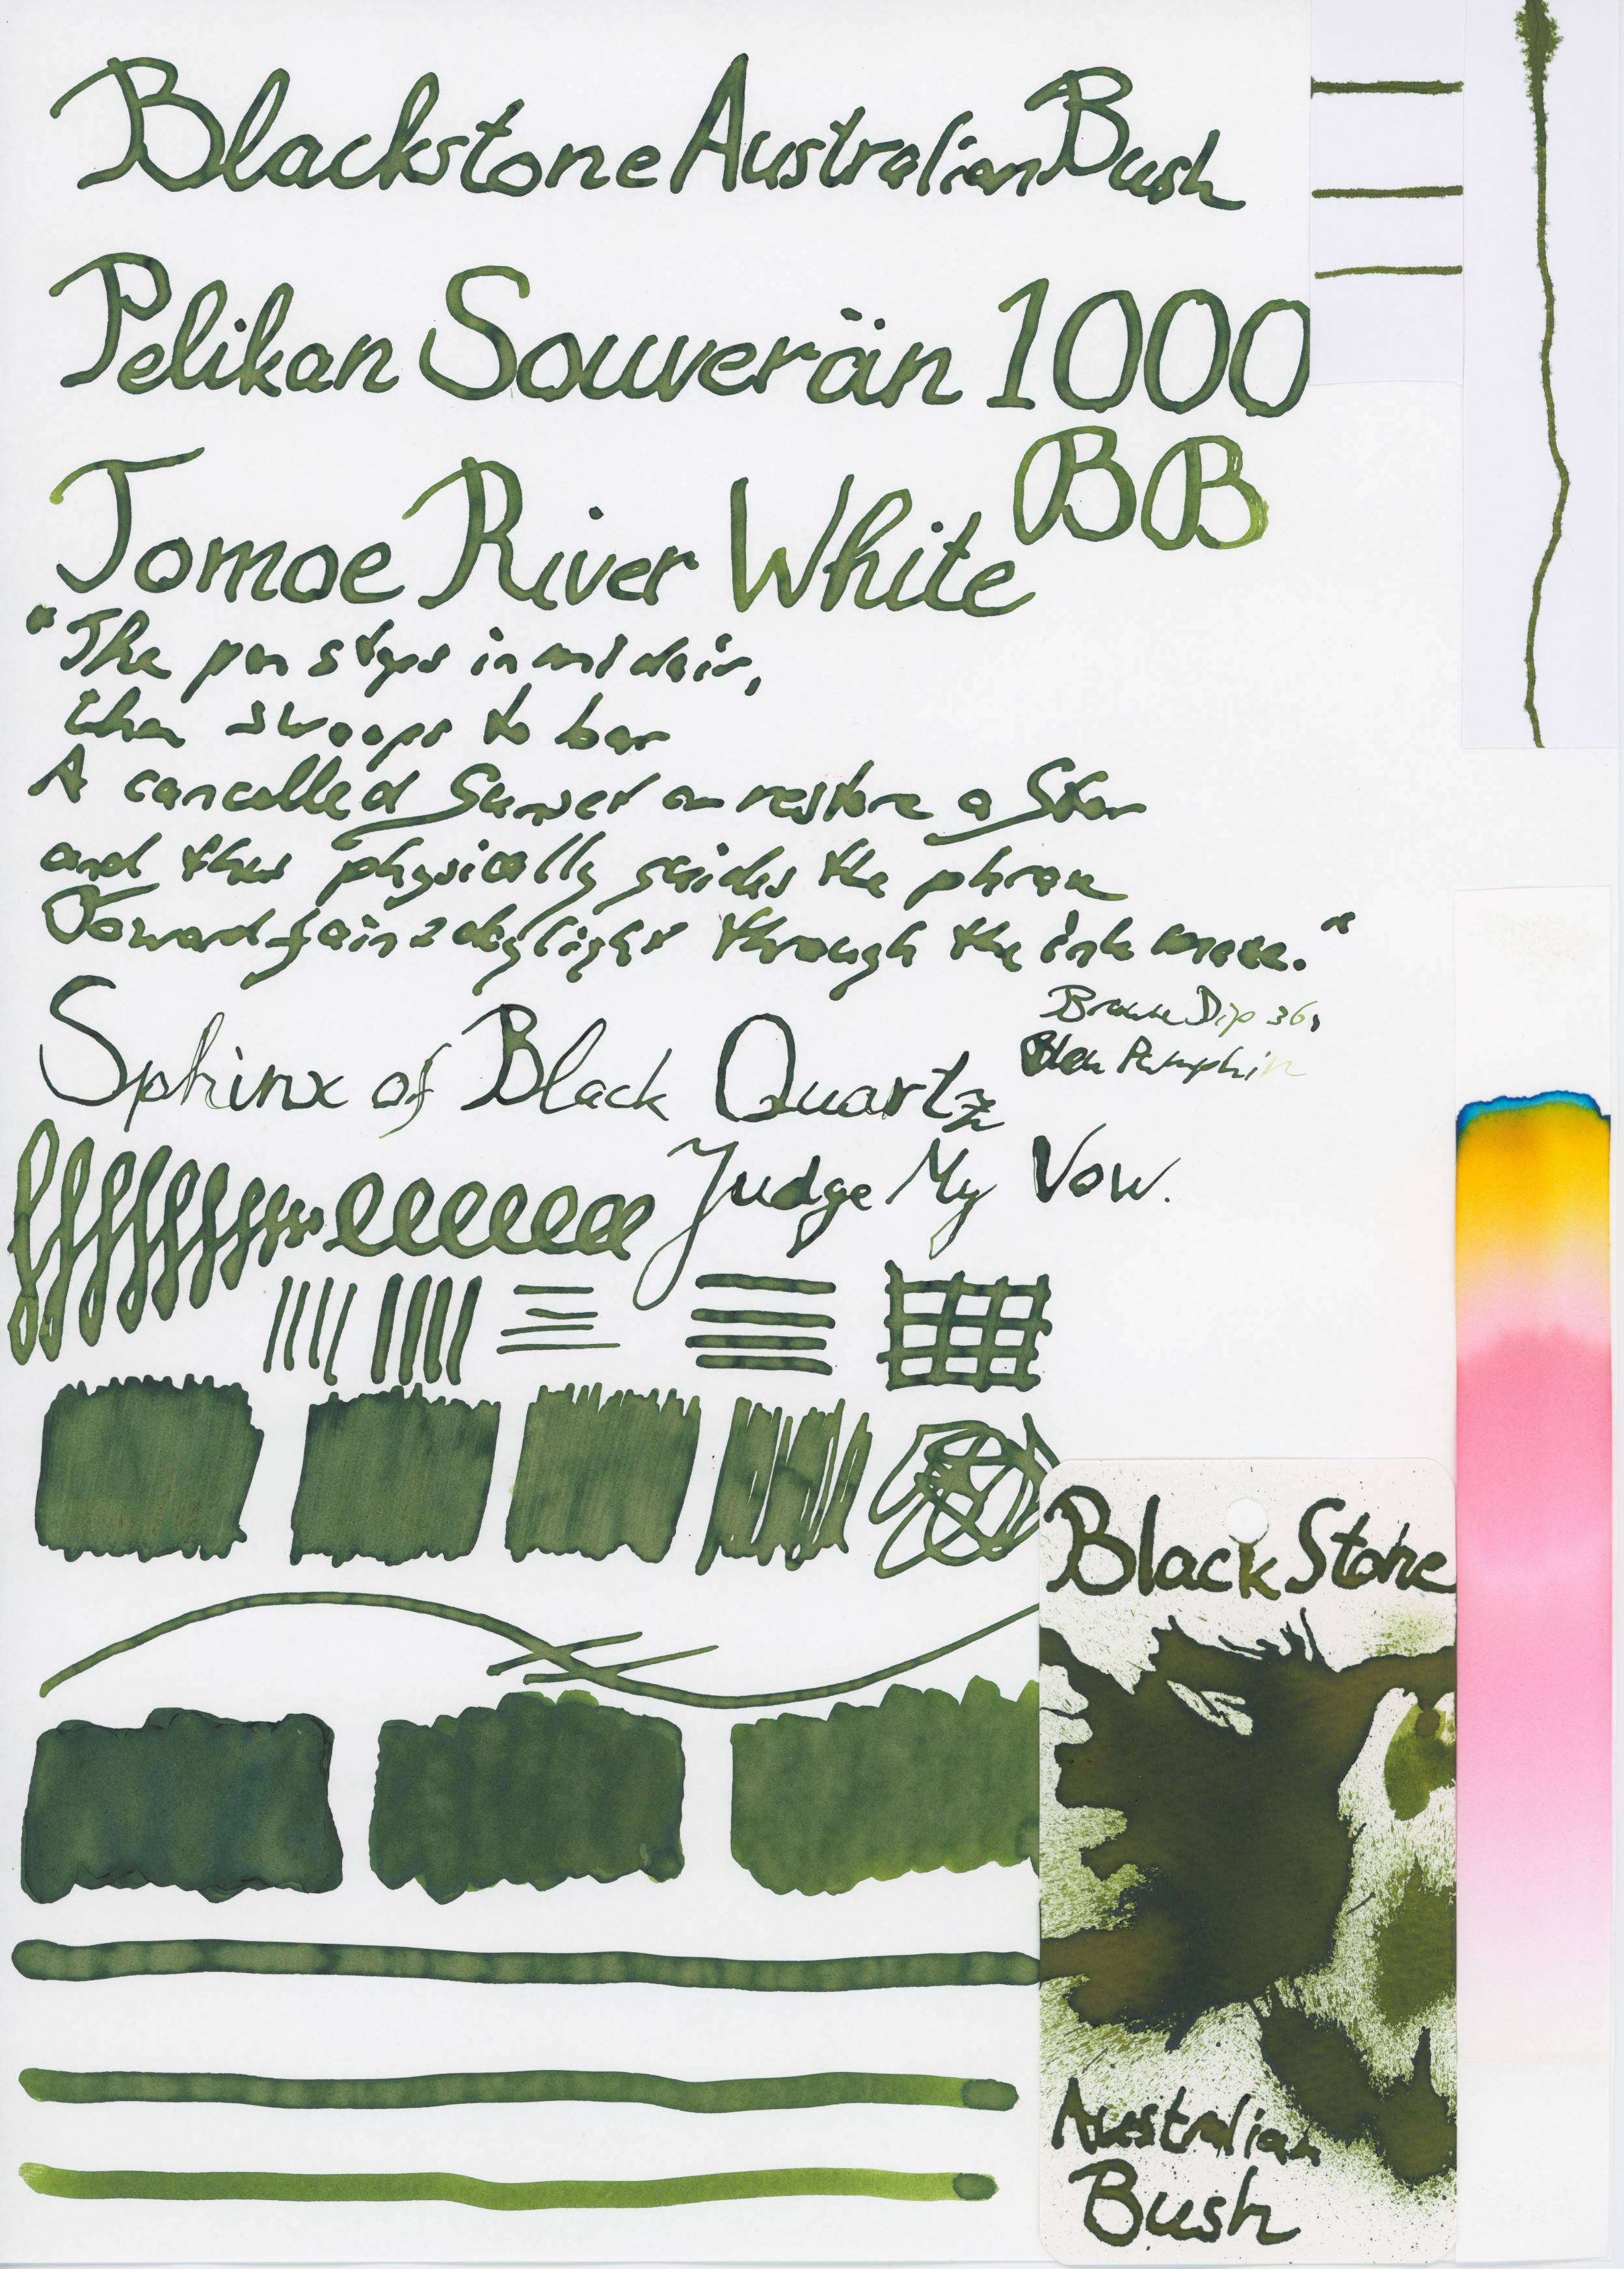 Blackstone Australian Bush
Pelikan Souverän 1000
BB
Tomoe River White
"The pen stops in mid air,
then swoops to bar
A cancelled Sunset or restore a Star
and thus physically guides the phrase
Toward faint daylight through the ink maze."
Brause Dip 361
Pumpkin
Sphinx of Black Quartz
Judge My Vow.
BlackStone
Australian
Bush